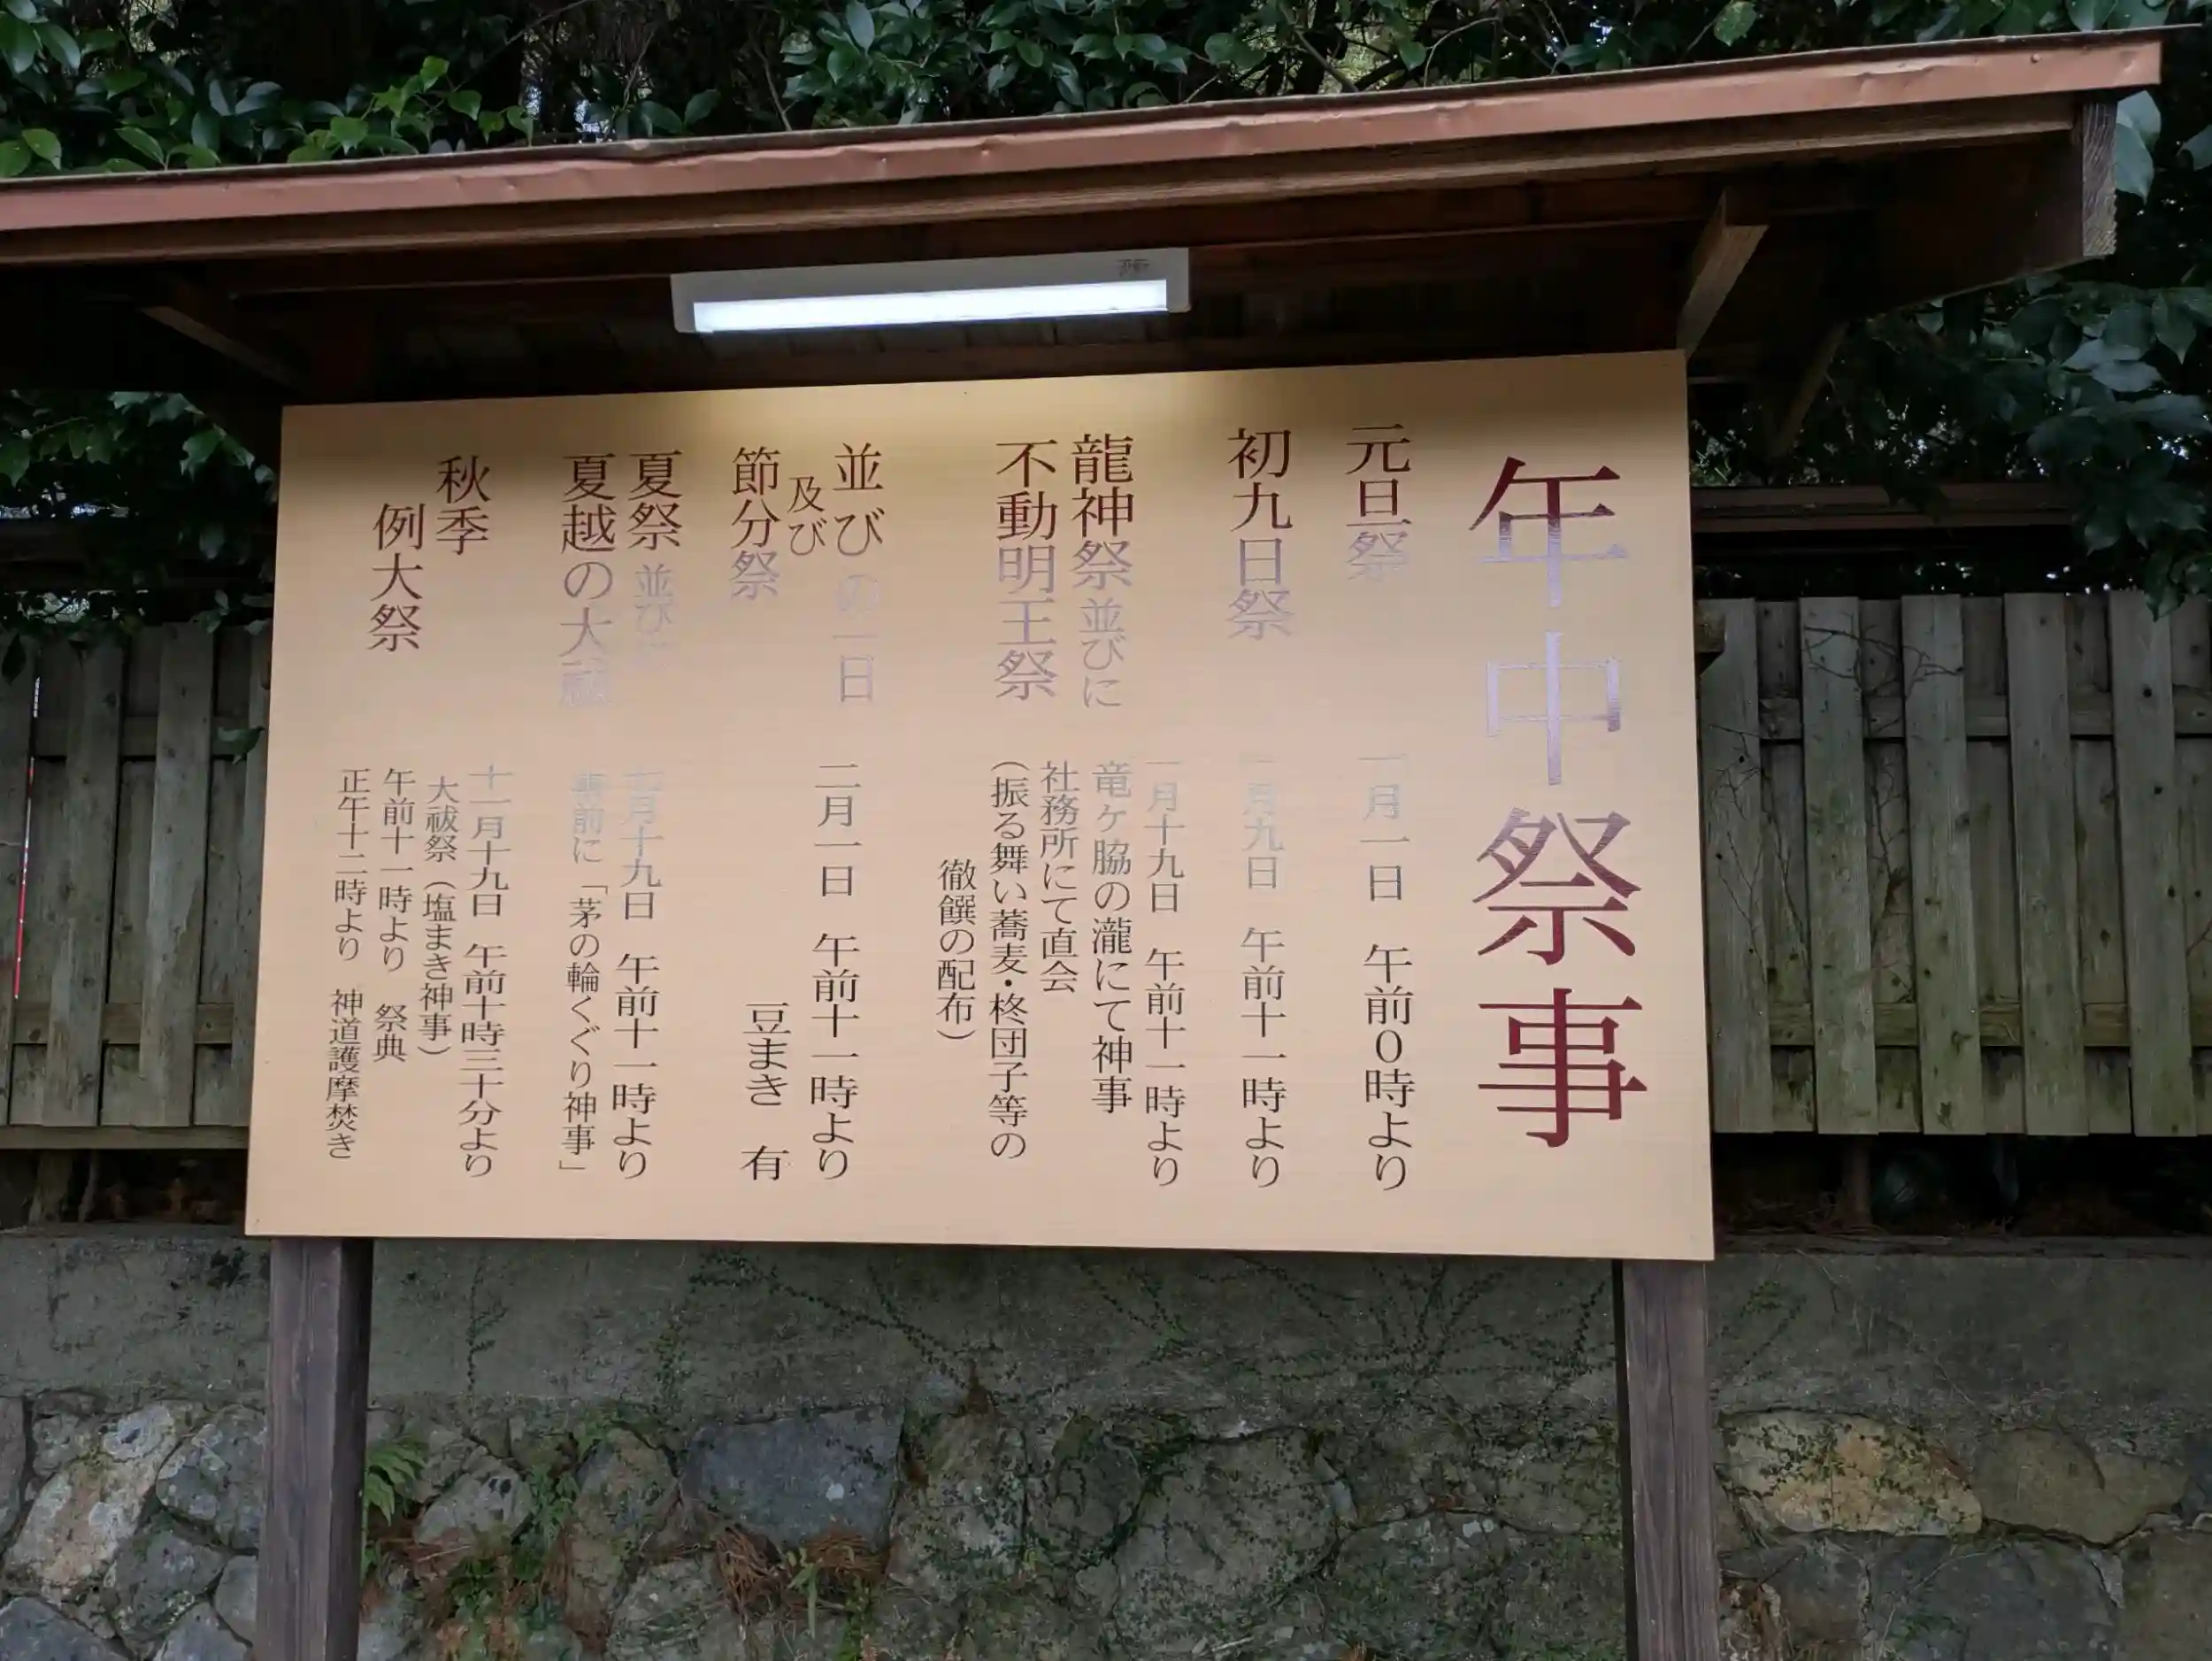 年中祭事
元旦祭
一月一日 午前0時より
初九日祭
一月九日 午前十一時より
龍神祭並びに
不動明王祭
一月十九日 午前十一時より
竜ケ脇の瀧にて神事
社務所にて直会
（振る舞い蕎麦・柊団子等の
徹饌の配布）
並びの一日
及び
節分祭
二月一日 午前十一時より
豆まき 有
夏祭並びに
夏越の大祓
七月十九日 午前十一時より
事前に「茅の輪くぐり神事」
秋季
例大祭
十一月十九日 午前十時三十分より
大祓祭（塩まき神事）
午前十一時より 祭典
正午十二時より 神道護摩焚き